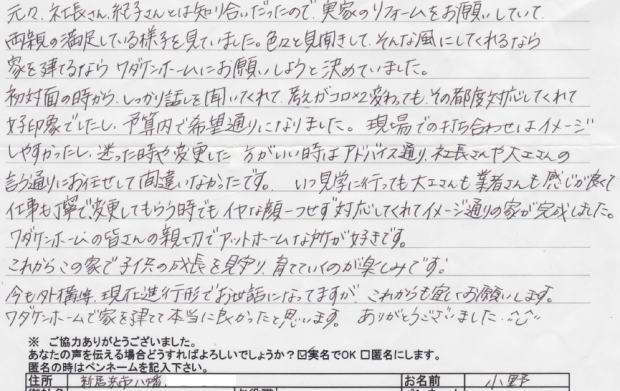 元々、社長さん、純子さんとは知り合いだったので、実家のリフォームをお願いしていて、
両親の満足している様子を見ていました。色々と見聞きして、そんな風にしてくれるなら
家を建てるなら ワダケンホームにお願いしようと決めていました。
初対面の時から、しっかり話しを聞いてくれて、考えがコロコロ変わっても、その都度対応してくれて
好印象でしたし、予算内で希望通りになりました。現場での打ち合わせはイメージ
しやすかったし、迷った時や変更した方がいい時はアドバイス通り、社長さんや大工さんの
言う通りにお任せして間違いなかったです。 いつ見学に行っても大工さんも業者さんも感じが良くて
仕事も丁寧で、変更してもらう時でもイヤな顔一つせず対応してくれてイメージ通りの家が完成しました。
ワダケンホームの皆さんの親切でアットホームな所が好きです。
これからこの家で子供の成長を見守り、育てていくのが楽しみです。
今も外構等、現在進行形でお世話になってますが、これからも宜しくお願いします。
ワダケンホームで家を建てて本当に良かったと思います。 ありがとうございました。
※ ご協力ありがとうございました。
あなたの声を伝える場合どうすればよろしいでしょうか?☑実名でOK □匿名にします。
匿名の時はペンネームを記入下さい。
住所 新居浜市八幡 お名前 小野